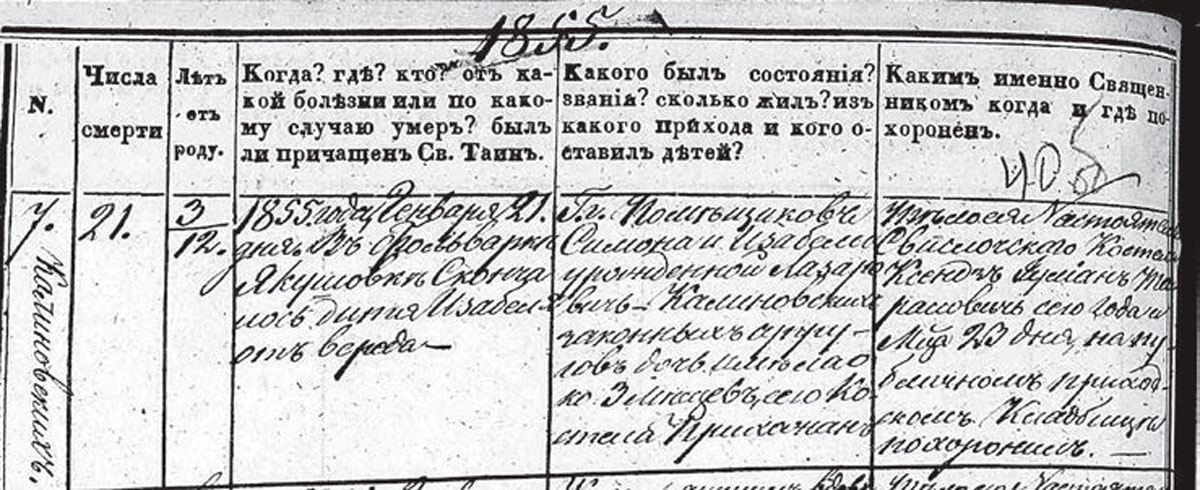 1855.
N.
Числа
смерти
Лѣтъ
отъ
роду.
Когда? гдѣ? кто? отъ ка-
кой болѣзни или по како-
му случаю умеръ? былъ
ли причащенъ Св. Таинъ.
Какого былъ состоянія?
званія? сколько жилъ? изъ
какого прихода и кого о-
ставилъ дѣтей?
Каким именно Священ-
никомъ когда и гдѣ по-
хороненъ.
7.
Калиновскихъ.
21.
3
12.
1855 года Генваря 21.
дня. Въ фольваркѣ
Якушовкѣ Сконча
лось дитя Изабеля
отъ вереда
Г.г. Помѣщиковъ
Симона и Изабелы
урожденной Лазаро
вичъ – Калиновскихъ
законныхъ супру-
говъ дочь, имѣла
3 мѣсяцевъ, сего Ко-
стела Прихожанъ
Тѣло ея Настоятель
Свислочского Костела
Ксендзъ
расовичъ сего года и
Мца 23 дня, на пу-
бличномъ приход-
скомъ Кладбищѣ
похоронилъ. –